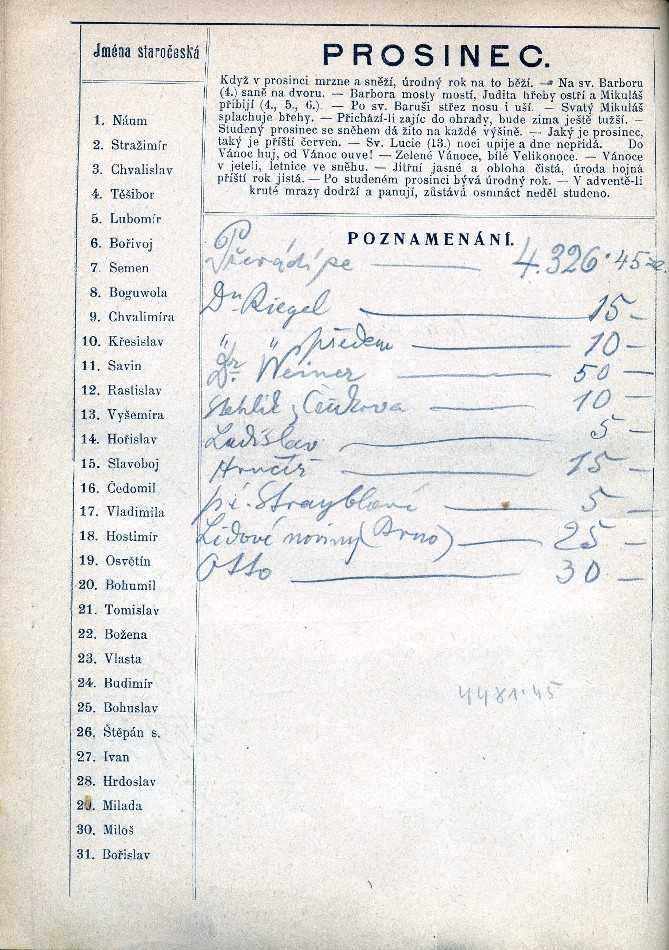 Jména staročeská
1. Náum
2. Stražimír
3. Chvalislav
4. Těšibor
5. Lubomír
6. Bořivoj
7. Semen
8. Boguwola
9. Chvalimíra
10. Křesislav
11. Savin
12. Rastislav
13. Vyšemíra
14. Hořislav
15. Slavoboj
16. Čedomil
17. Vladimila
18. Hostimír
19. Osvětín
20. Bohumil
21. Tomislav
22. Božena
23. Vlasta
24. Budimír
25. Bohuslav
26. Štěpán s.
27. Ivan
28. Hrdoslav
29. Milada
30. Miloš
31. Bořislav
PROSINEC.
Když v prosinci mrzne a sněží, úrodný rok na to běží. — Na sv. Barboru
(4.) saně na dvoru. — Barbora mosty mostí, Judita hřeby ostří a Mikuláš
přibíjí (4., 5., 6.). — Po sv. Baruši střez nosu i uší. — Svatý Mikuláš
splachuje břehy. — Přichází-li zajíc do ohrady, bude zima ještě tužší. —
Studený prosinec se sněhem dá žito na každé výšině. — Jaký je prosinec,
taký je příští červen. — Sv. Lucie (13.) noci upije a dne nepřidá. Do
Vánoc huj, od Vánoc ouve! — Zelené Vánoce, bílé Velikonoce. — Vánoce
v jeteli, letnice ve sněhu. — Jitřní jasné a obloha čistá, úroda hojná
příští rok jistá. — Po studeném prosinci bývá úrodný rok. — V adventě-li
kruté mrazy dodrží a panují, zůstává osmnáct neděl studeno.
POZNAMENÁNÍ.
Převádí se — 4.326·45
Dr Riegel — 15 —
" " předem — 10 —
Dr. Weiner — 50 —
Stehlík z — 10 —
Ladislav — 5 —
Hrnčíř — 15 —
pí. — 5 —
Lidové noviny (Brno) — 25 —
Otto — 30 —
4481·45